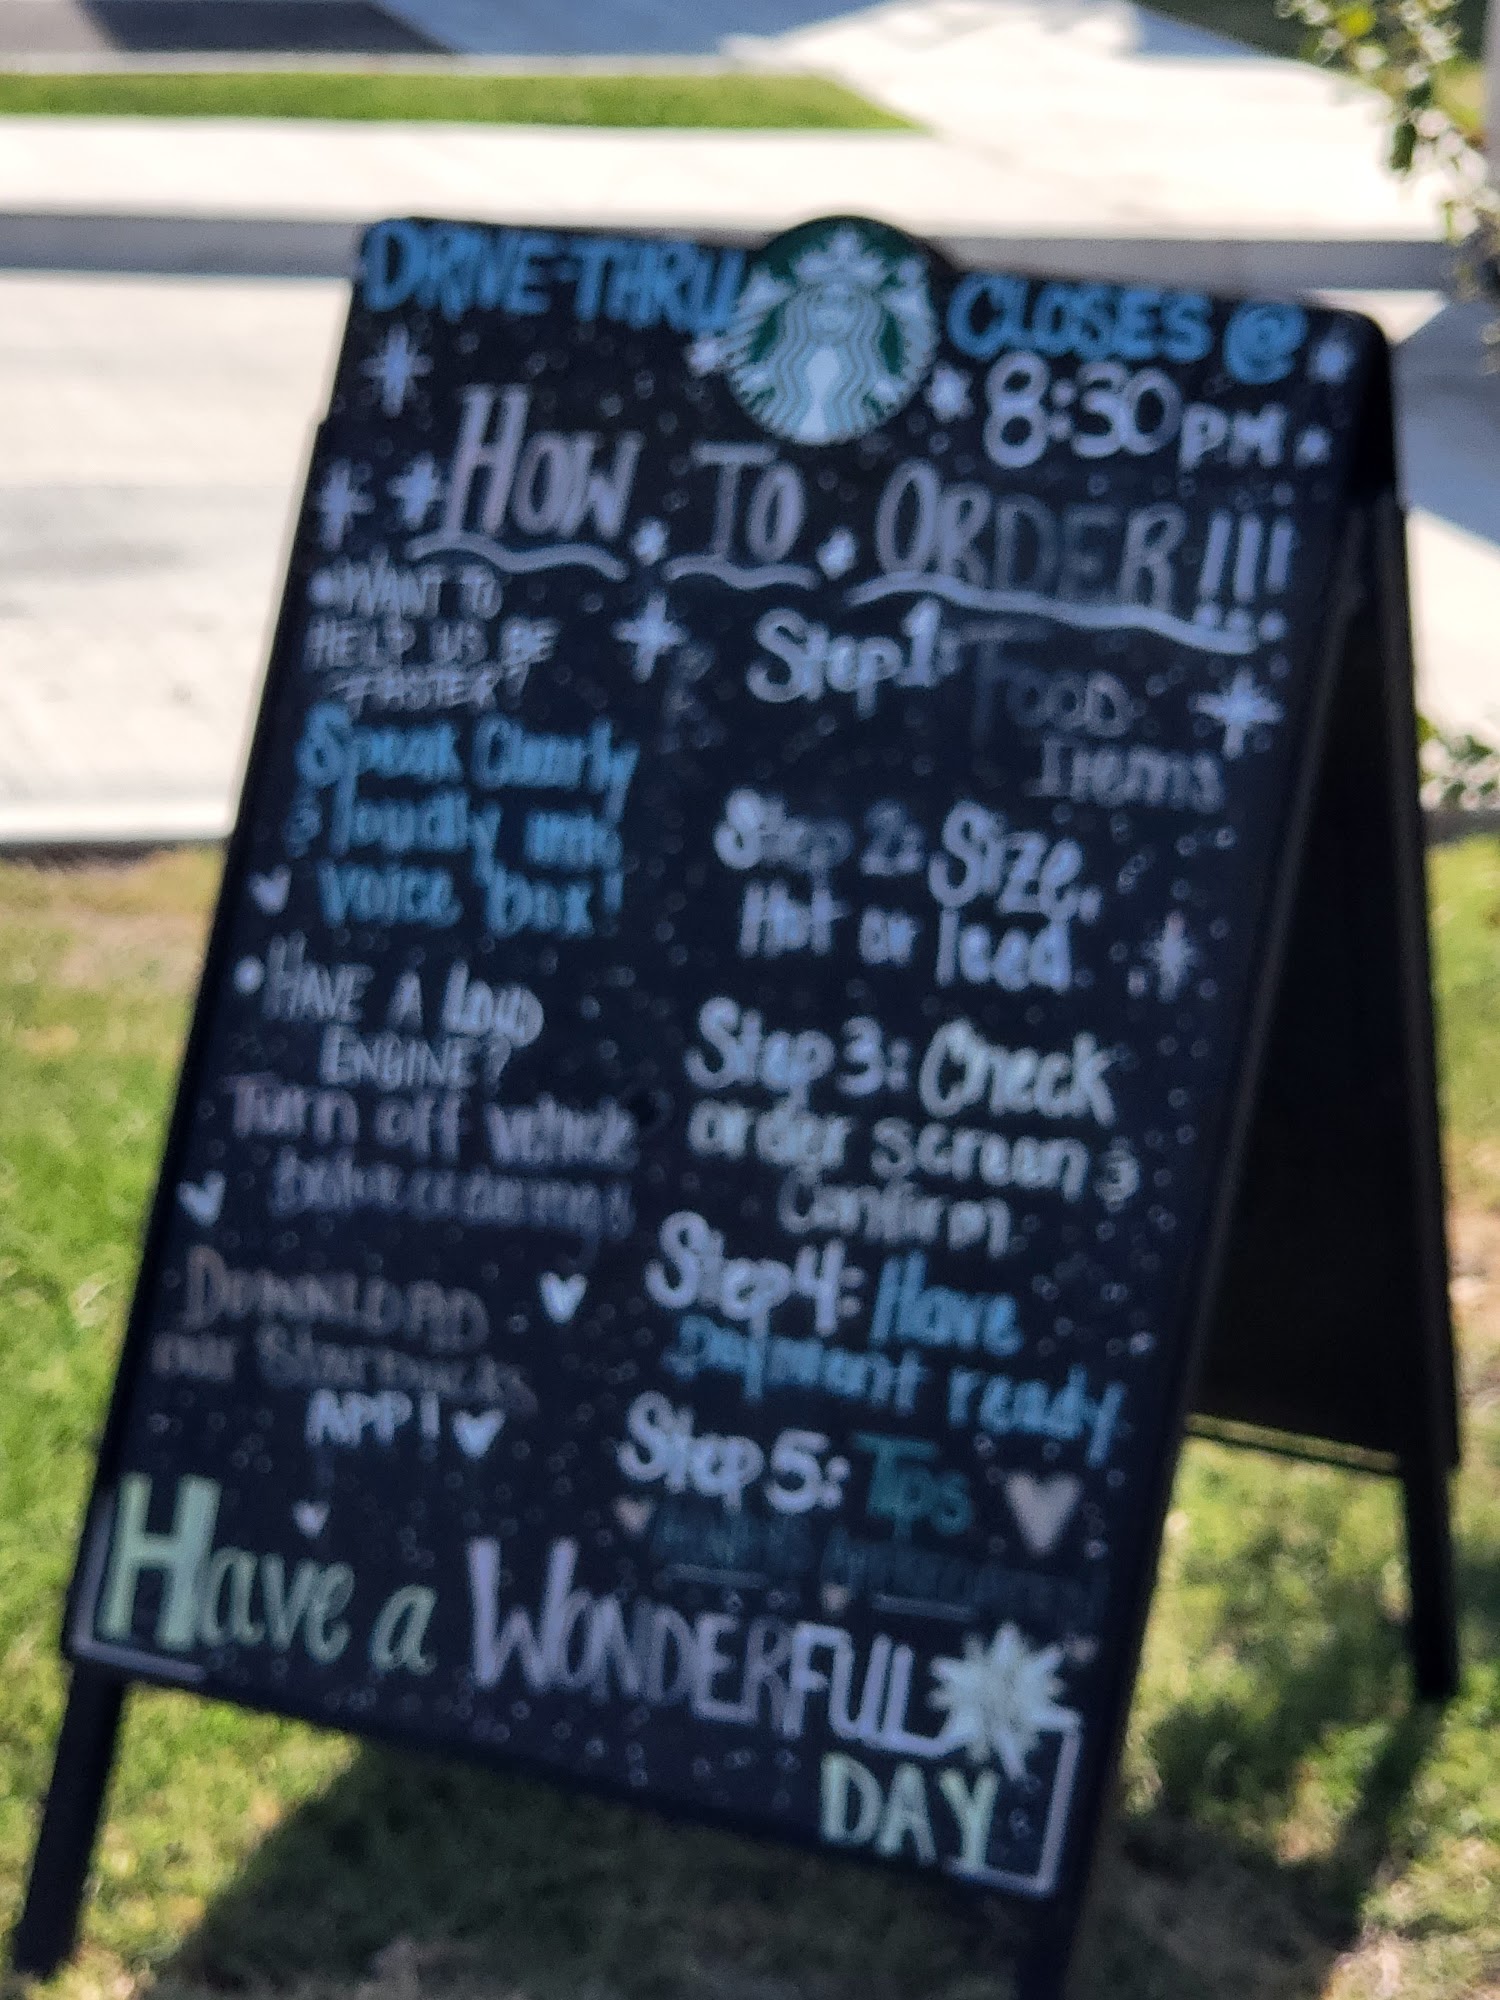 DRIVE-THRU CLOSES @
8:30 PM
HOW TO ORDER!!!
• WANT TO
HELP US BE
FASTER?
Speak Clearly
& loudly into
voice box!
• HAVE A LOUD
ENGINE?
Turn off vehicle
before ordering!
DOWNLOAD
our STARBUCKS
APP!
Step 1: FOOD
Items
Step 2: Size,
Hot or Iced
Step 3: Check
order screen &
Confirm
Step 4: Have
payment ready
Step 5: Tips
Have a WONDERFUL
DAY